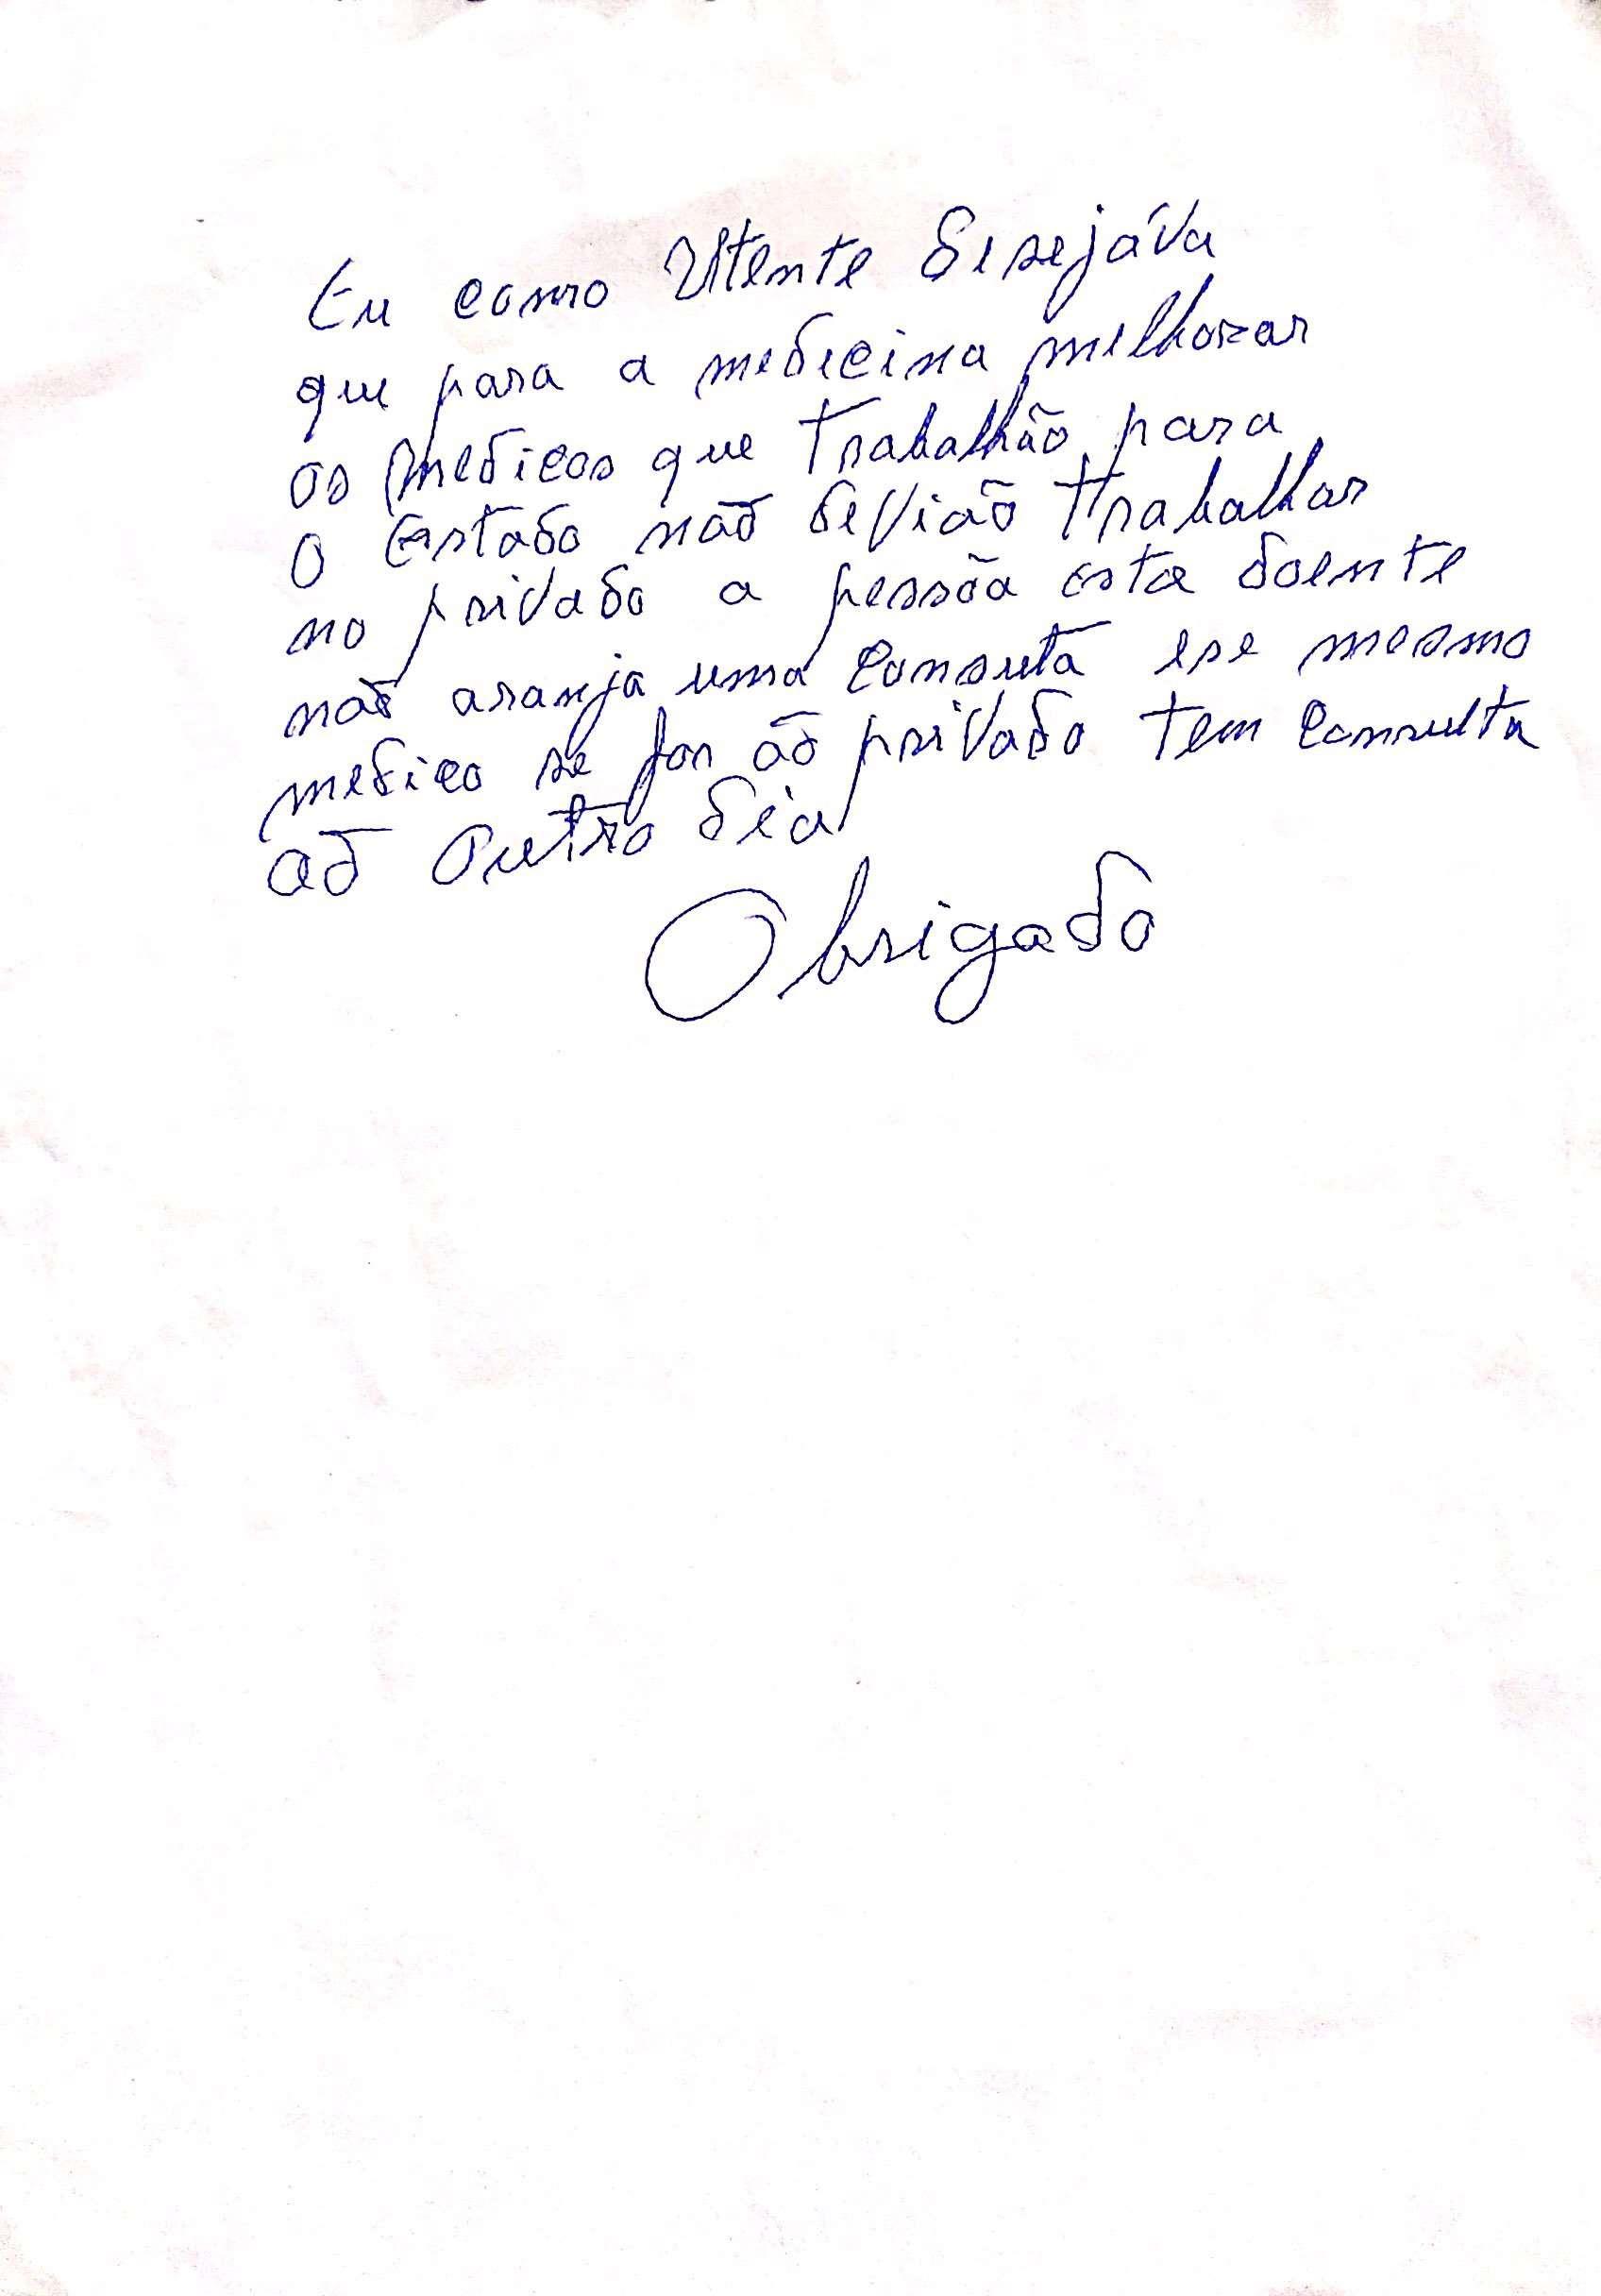 Eu como Utente desejáva
que para a medicina melhorar
os medicos que trabalhão para
o Estado não devião trabalhar
no privado a pessõa esta doente
não aranja uma consuta ese mesmo
medico se for ão privado tem consulta
aõ outro dia
Obrigado